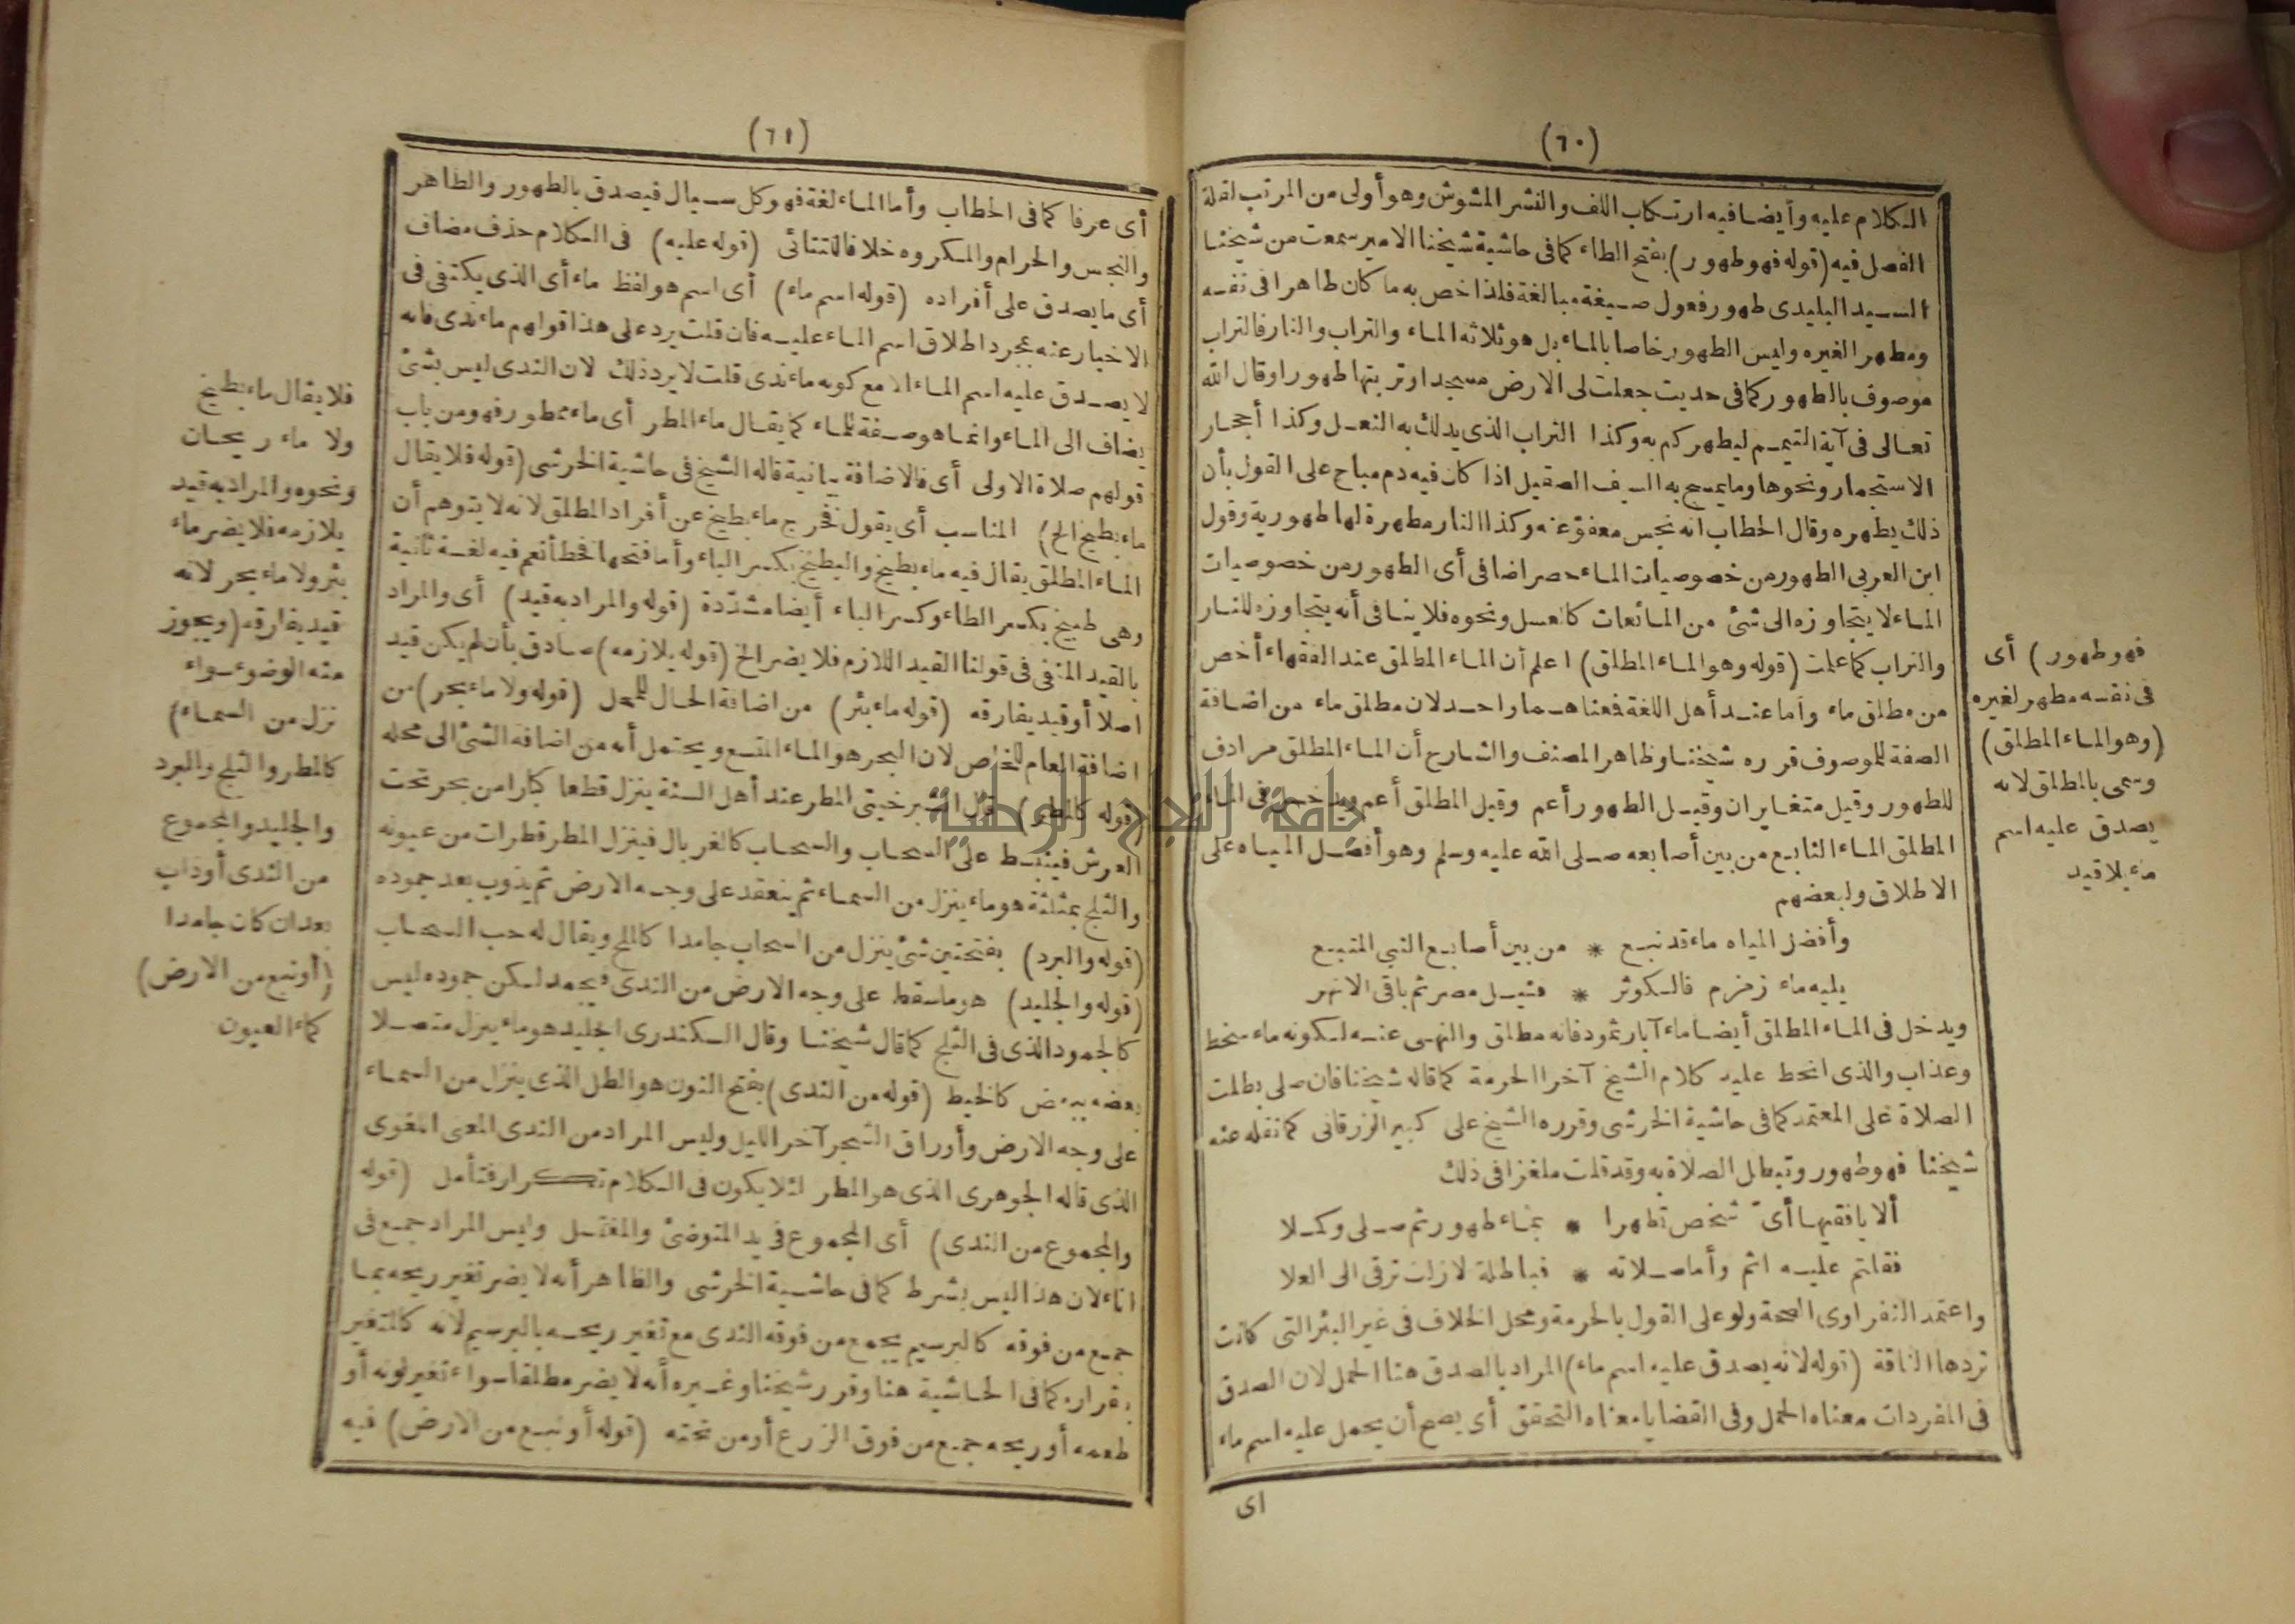 (٦٠)
الكلام عليه وأيضا فيه ارتكاب اللف والنشر المشوش وهو أولى من المرتب لقلة
الفصل فيه (قوله فهو طهور) بفتح الطاء كما فى حاشية شيخنا الامير سمعت من شيخنا
السيد البليدى طهور فعول صيغة مبالغة فلذا خص به ما كان طاهرا فى نفسه
ومطهر الغيره وليس الطهور خاصا بالماء بل هو ثلاثة الماء والتراب والنار فالتراب
موصوف بالطهور كما فى حديث جعلت لى الارض مسجدا وتربتها طهورا وقال الله
تعالى فى آية التيمم ليطهركم به وكذا التراب الذى يدلك به النعل وكذا أحجار
الاستجمار ونحوها وما يمسح به السيف الصقيل اذا كان فيه دم مباح على القول بأن
ذلك يطهره وقال الحطاب انه نجس معفوّ عنه وكذا النار مطهرة لها طهورية وقول
ابن العربى الطهور من خصوصيات الماء حصر اضافى أى الطهور من خصوصيات
الماء لا يتجاوزه الى شئ من المائعات كالعسل ونحوه فلا ينافى أنه يتجاوزه للنار
والتراب كما علمت (قوله وهو الماء المطلق) اعلم أن الماء المطلق عند الفقهاء أخص
من مطلق ماء وأما عند أهل اللغة فمعناهما واحد لان مطلق ماء من اضافة
الصفة للموصوف قرره شيخنا وظاهر المصنف والشارح أن الماء المطلق مرادف
للطهور وقيل متغايران وقيل الطهور أعم وقيل المطلق أعم ويدخل فى الماء
المطلق الماء النابع من بين أصابعه صلى الله عليه وسلم وهو أفضل المياه على
الاطلاق ولبعضهم
وأفضل المياه ماء قد نبع * من بين أصابع النبي المتبع
يليه ماء زمزم فالكوثر * فنيل مصر ثم باقى الانهر
ويدخل فى الماء المطلق أيضا ماء آبار ثمود فانه مطلق والنهى عنه لكونه ماء سخط
وعذاب والذى انحط عليه كلام الشيخ آخرا الحرمة كما قاله شيخنا فان صلى بطلت
الصلاة على المعتمد كما فى حاشية الخرشى وقرره الشيخ على كبير الزرقانى كما نقله عنه
شيخنا فهو طهور وتبطل الصلاة به وقد قلت ملغزا فى ذلك
ألا يا فقيها أىّ شخص تطهرا * بماء طهور ثم صلى وكملا
فقلتم عليه اثم وأما صلاته * فباطلة لا زلت ترقى الى العلا
واعتمد النفراوى الصحة ولو على القول بالحرمة ومحل الخلاف فى غير البئر التى كانت
تردها الناقة (قوله لانه يصدق عليه اسم ماء) المراد بالصدق هنا الحمل لان الصدق
فى المفردات معناه الحمل وفى القضايا معناه التحقق أى يصح أن يحمل عليه اسم ماء
اى
فهو طهور) أى
فى نفسه مطهر لغيره
(وهو الماء المطلق)
وسمى بالمطلق لانه
يصدق عليه اسم
ماء بلا قيد
(٦١)
أى عرفا كما فى الحطاب وأما الماء لغة فهو كل سيال فيصدق بالطهور والطاهر
والنجس والحرام والمكروه خلافا للتتائى (قوله عليه) فى الكلام حذف مضاف
أى ما يصدق على أفراده (قوله اسم ماء) أى اسم هو لفظ ماء أى الذى يكتفى فى
الاخبار عنه بمجرد اطلاق اسم الماء عليه فان قلت يرد على هذا قولهم ماء ندى فانه
لا يصدق عليه اسم الماء الا مع كونه ماء ندى قلت لا يرد ذلك لان الندى ليس بشئ
يضاف الى الماء وانما هو صفة للماء كما يقال ماء المطر أى ماء ممطور فهو من باب
قولهم صلاة الاولى أى فالاضافة بيانية قاله الشيخ فى حاشية الخرشى (قوله فلا يقال
ماء بطيخ الخ) المناسب أى يقول فخرج ماء بطيخ عن أفراد المطلق لانه لا يتوهم أن
الماء المطلق يقال فيه ماء بطيخ والبطيخ بكسر الباء وأما فتحها فخطأ نعم فيه لغة ثانية
وهى طبيخ بكسر الطاء وكسر الباء أيضا مشدّدة (قوله والمراد به قيد) أى والمراد
بالقيد المنفى فى قولنا القيد اللازم فلا يضر الخ (قوله يلازمه) صادق بأن لم يكن قيد
اصلا أو قيد يفارقه (قوله ماء بئر) من اضافة الحال للمحل (قوله ولا ماء بحر) من
اضافة العام للخاص لان البحر هو الماء المتسع ويحتمل أنه من اضافة الشئ الى محله
(قوله كالمطر) قال الشبرخيتى المطر عند أهل السنة ينزل قطعا كبارا من بحر تحت
العرش فينبسط على السحاب والسحاب كالغربال فينزل المطر قطرات من عيونه
والثلج بمثلثة هو ماء ينزل من السماء ثم ينعقد على وجه الارض ثم يذوب بعد جموده
(قوله والبرد) بفتحتين شئ ينزل من السحاب جامدا كالملح ويقال له حب السحاب
(قوله والجليد) هو ما سقط على وجه الارض من الندى فيجمد لكن جموده ليس
كالجمود الذى فى الثلج كما قال شيخنا وقال السكندرى الجليد هو ماء ينزل متصلا
بعضه ببعض كالخيط (قوله من الندى) بفتح النون هو الطل الذى ينزل من السماء
على وجه الارض وأوراق الشجر آخر الليل وليس المراد من الندى المعنى اللغوى
الذى قاله الجوهرى الذى هو المطر لئلا يكون فى الكلام تكرار فتأمل (قوله
والمجموع من الندى) أى المجموع فى يد المتوضئ والمغتسل وليس المراد جمع فى
اناء لان هذا ليس بشرط كما فى حاشية الخرشى والظاهر أنه لا يضر تغير ريحه بما
جمع من فوقه كالبرسيم يجمع من فوقه الندى مع تغير ريحه بالبرسيم لانه كالمتغير
بقراره كما فى الحاشية هنا وقرر شيخنا وغيره أنه لا يضر مطلقا سواء تغير لونه أو
طعمه أو ريحه جمع من فوق الزرع أو من تحته (قوله أو نبع من الارض) فيه
فلا يقال ماء بطيخ
ولا ماء ريحان
ونحوه والمراد به قيد
يلازمه فلا يضر ماء
بئر ولا ماء بحر لانه
قيد يفارقه (ويجوز
منه الوضوء سواء
نزل من السماء)
كالمطر والثلج والبرد
والجليد والمجموع
من الندى أو ذاب
بعد ان كان جامدا
(أو نبع من الارض)
كماء العيون
جامعة النجاح الوطنية